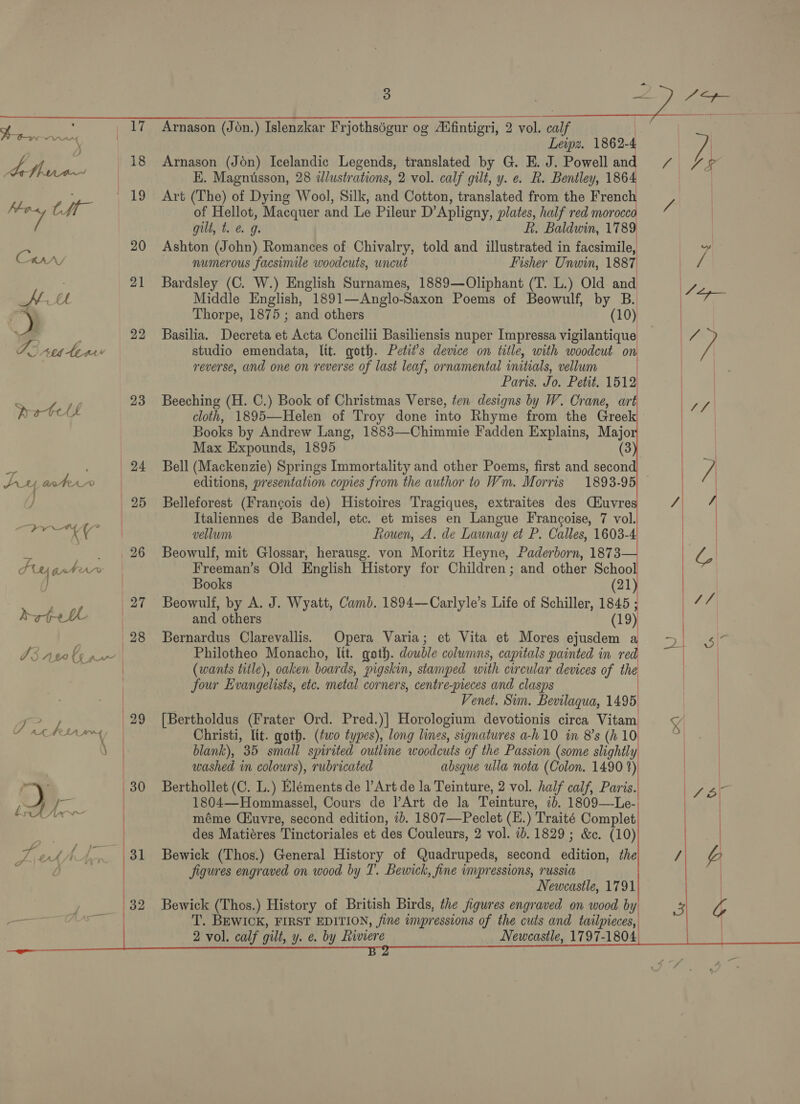 3
17 Arnason (Jón.) Islenzkar Frjothsögur og Æfintigri, 2 vol. calf
Leipz. 1862-4
18 Arnason (Jón) Icelandic Legends, translated by G. E. J. Powell and
E. Magnússon, 28 illustrations, 2 vol. calf gilt, y. e. R. Bentley, 1864
19 Art (The) of Dying Wool, Silk, and Cotton, translated from the French
of Hellot, Macquer and Le Pileur D'Apligny, plates, half red morocco
gilt, t. e. g. R. Baldwin, 1789
20 Ashton (John) Romances of Chivalry, told and illustrated in facsimile,
numerous facsimile woodcuts, uncut Fisher Unwin, 1887
21 Bardsley (C. W.) English Surnames, 1889—Oliphant (T. L.) Old and
Middle English, 1891—Anglo-Saxon Poems of Beowulf, by B.
Thorpe, 1875; and others (10)
22 Basilia. Decreta et Acta Concilii Basiliensis nuper Impressa vigilantique
studio emendata, lit. goth. Petit's device on title, with woodcut on
reverse, and one on reverse of last leaf, ornamental initials, vellum
Paris. Jo. Petit. 1512
23 Beeching (H. C.) Book of Christmas Verse, ten designs by W. Crane, art
cloth, 1895—Helen of Troy done into Rhyme from the Greek
Books by Andrew Lang, 1883—Chimmie Fadden Explains, Major
Max Expounds, 1895 (3)
24 Bell (Mackenzie) Springs Immortality and other Poems, first and second
editions, presentation copies from the author to Wm. Morris 1893-95
25 Belleforest (François de) Histoires Tragiques, extraites des Œuvres
Italiennes de Bandel, etc. et mises en Langue Françoise, 7 vol.
vellum Rouen, A. de Launay et P. Calles, 1603-4
26 Beowulf, mit Glossar, herausg. von Moritz Heyne, Paderborn, 1873—
Freeman's Old English History for Children; and other School
Books (21)
27 Beowulf, by A. J. Wyatt, Camb. 1894—Carlyle's Life of Schiller, 1845;
and others (19)
28 Bernardus Clarevallis. Opera Varia; et Vita et Mores ejusdem a
Philotheo Monacho, lit. goth. double columns, capitals painted in red
(wants title), oaken boards, pigskin, stamped with circular devices of the
four Evangelists, etc. metal corners, centre-pieces and clasps
Venet. Sim. Bevilaqua, 1495
29 [Bertholdus (Frater Ord. Pred.)] Horologium devotionis circa Vitam
Christi, lit. goth. (two types), long lines, signatures a-h 10 in 8's (h 10
blank), 35 small spirited outline woodcuts of the Passion (some slightly
washed in colours), rubricated absque ulla nota (Colon. 1490?)
30 Berthollet (C. L.) Éléments de l'Art de la Teinture, 2 vol. half calf, Paris.
1804—Hommassel, Cours de l'Art de la Teinture, ib. 1809—Le-
même Œuvre, second edition, ib. 1807—Peclet (E.) Traité Complet
des Matiéres Tinctoriales et des Couleurs, 2 vol. ib. 1829; &c. (10)
31 Bewick (Thos.) General History of Quadrupeds, second edition, the
figures engraved on wood by T. Bewick, fine impressions, russia
Newcastle, 1791
32 Bewick (Thos.) History of British Birds, the figures engraved on wood by
T. BEWICK, FIRST EDITION, fine impressions of the cuts and tailpieces,
2 vol. calf gilt, y. e. by Riviere Newcastle, 1797-1804
B 2